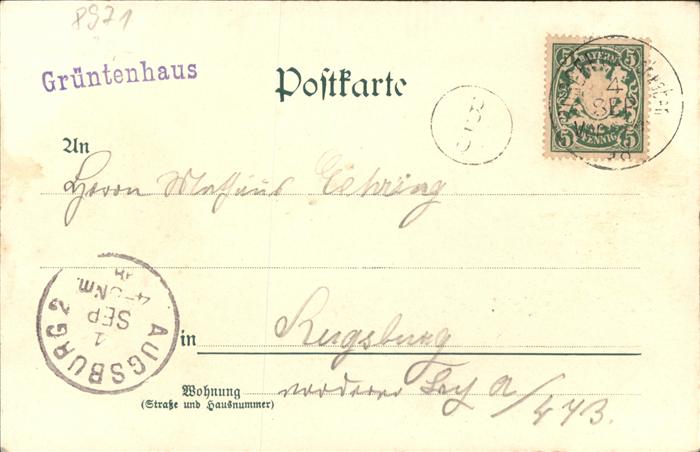 8971
Grüntenhaus
Postkarte
5 BAYERN 5
5 PFENNIG 5
4
SEP
An
Herrn Mathäus
AUGSBURG 2
1
SEP
4-5 Nm.
in Augsburg
Wohnung
(Straße und Hausnummer)
vorderer Lech A/473.